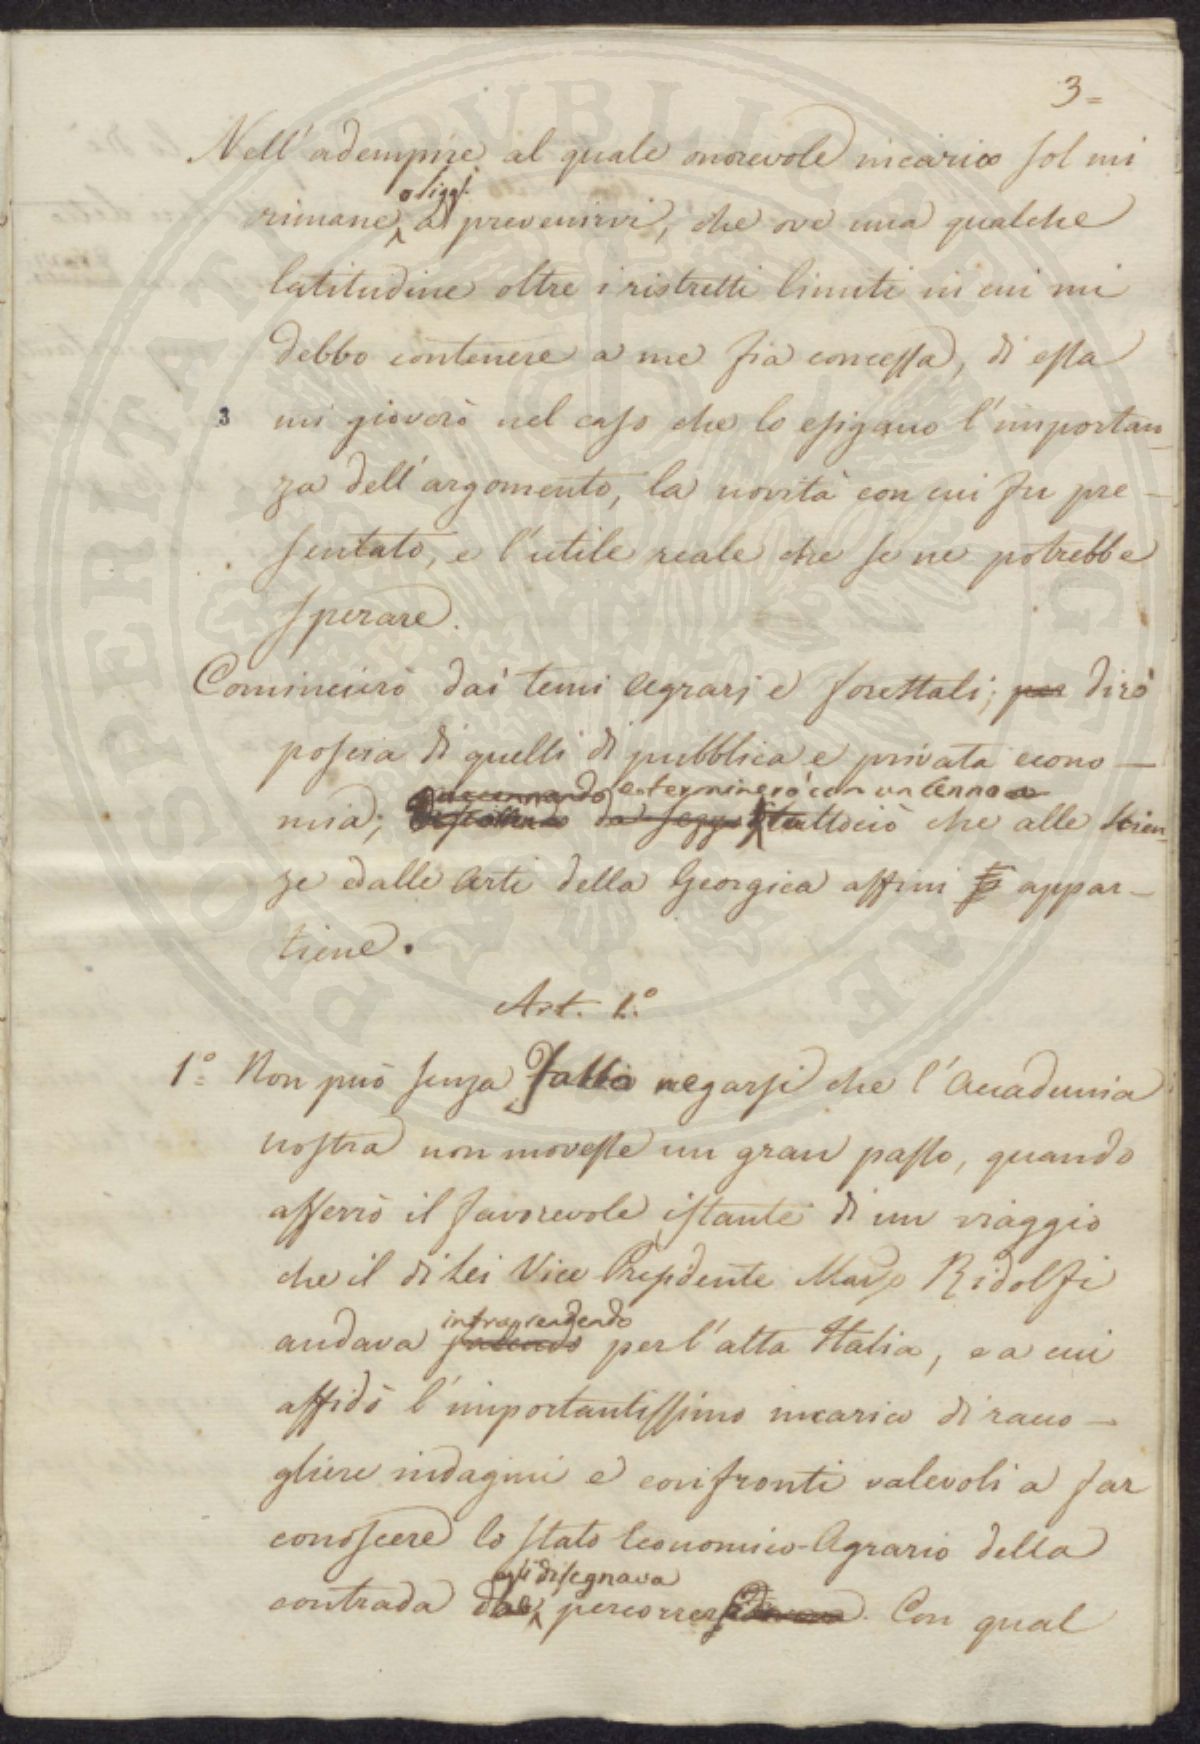 3=
Nell'adempire al quale onorevole incarico sol mi
oggi
rimane, a prevenirvi, che ove una qualche
latitudine oltre i ristretti limiti in cui mi
debbo contenere a me fia concessa, di essa
3 mi gioverò nel caso che lo esigano l'importan
za dell'argomento, la novità con cui fu pre-
sentato, e l'utile reale che se ne potrebbe
sperare.
Comincierò dai temi Agrarj e forestali; per dirò
poscia di quelli di pubblica e privata econo-
accennando e terminerò con un Cenno a
mia; da sezzo tuttociò che alle scien
ze ed alle Arti della Georgica affini appar-
tiene.
Art. 1.°
1° Non può senza fallo negarsi che l'Accademia
nostra non movesse un gran passo, quando
afferrò il favorevole istante di un viaggio
che il di Lei Vice Presidente March. Ridolfi
intraprendendo
andava facendo per l'alta Italia, e a cui
affidò l'importantissimo incarico di racco-
gliere indagini e confronti valevoli a far
conoscere lo stato Economico-Agrario della
egli disegnava
contrada percorrer. Con qual
PROSPERITATI PUBLICAE AUGENDAE